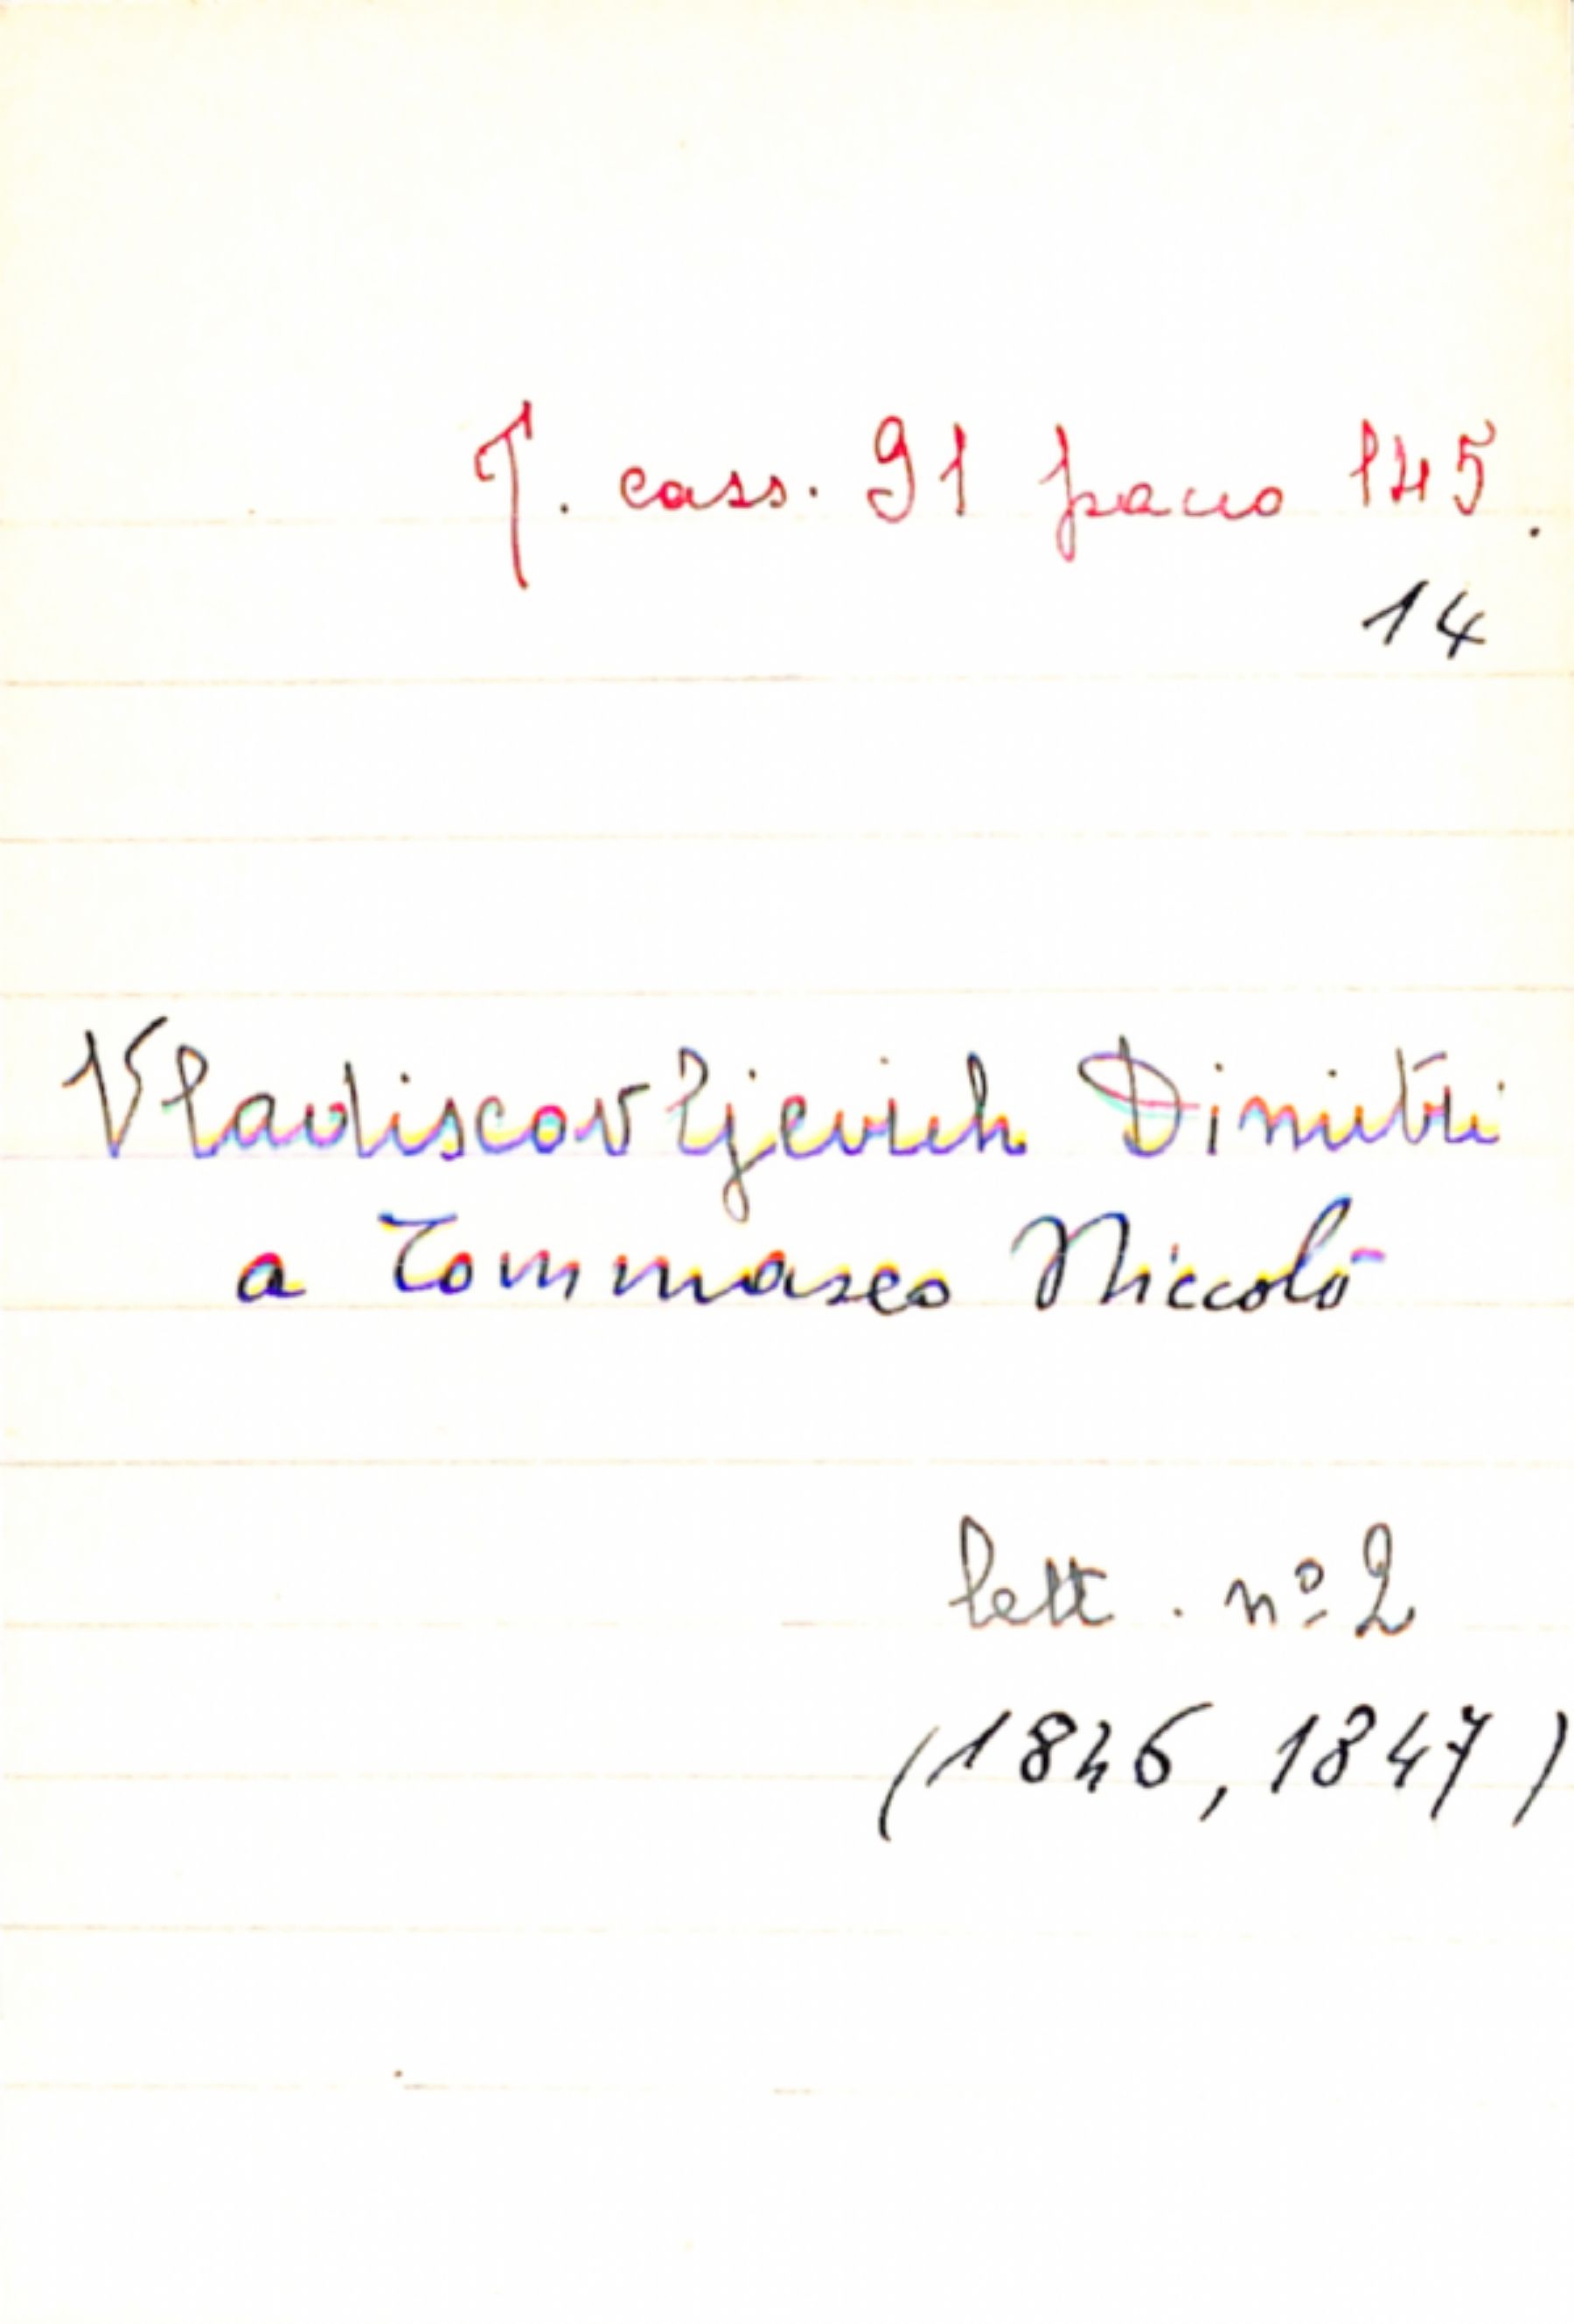 T. cass. 91 pacco 145.
14
Vladiscovljevich Dimitri
a Tommaseo Niccolò
lett. nº 2
(1846, 1847)